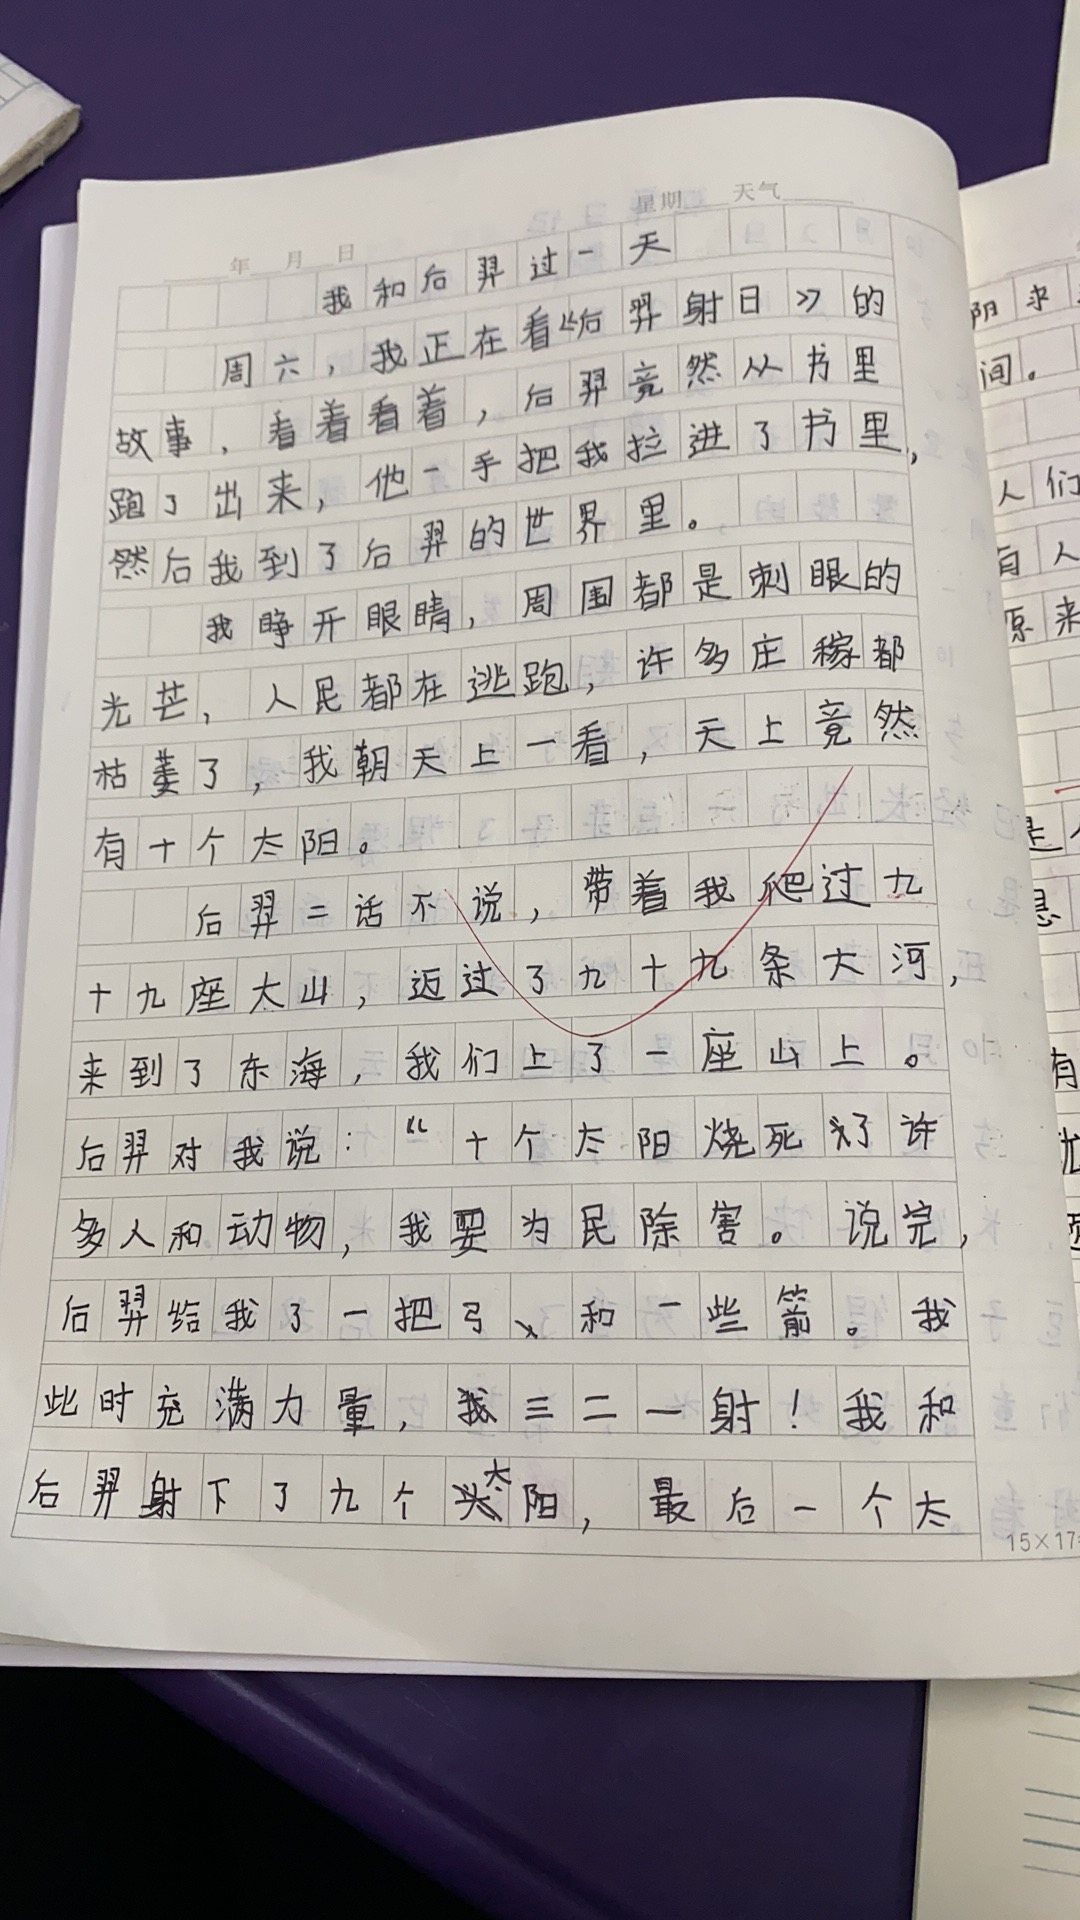 星期 天气
年 月 日
我和后羿过一天
周六，我正在看《后羿射日》的
故事，看着看着，后羿竟然从书里
跑了出来，他一手把我拉进了书里，
然后我到了后羿的世界里。
我睁开眼睛，周围都是刺眼的
光芒，人民都在逃跑，许多庄稼都
枯萎了，我朝天上一看，天上竟然
有十个太阳。
后羿二话不说，带着我爬过九
十九座大山，迈过了九十九条大河，
来到了东海，我们上了一座山上。
后羿对我说：“十个太阳烧死了许
多人和动物，我要为民除害。说完，
后羿给我了一把弓、和一些箭。我
此时充满力量，我三二一射！我和
后羿射下了九个太阳，最后一个太
15×17
阳求
间。
人们
有人
原来
是
息
有